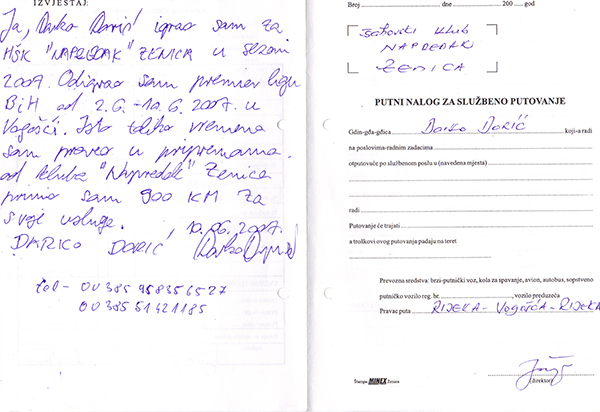 IZVJEŠTAJ:
Ja, Darko Dorić igrao sam za
HŠK "NAPREDAK" ZENICA u sezoni
2007. Odigrao sam premier ligu
BiH od 2.6.-10.6.2007. u
Vogošći. Isto toliko vremena
sam proveo u pripremama.
od kluba "Napredak" Zenica
primio sam 900 KM za
svoje usluge.
10.06.2007.
DARKO DORIĆ
tel- 00385 958356527
00385 51421185
Broj dne 200 god
Šahovski klub
NAPREDAK
ZENICA
PUTNI NALOG ZA SLUŽBENO PUTOVANJE
Gdin-gđa-gđica Darko Dorić koji-a radi
na poslovima-radnim zadacima
otputovaće po službenom poslu u (navedena mjesta)
radi
Putovanje će trajati
a troškovi ovog putovanja padaju na teret
Prevozna sredstva: brzi-putnički voz, kola za spavanje, avion, autobus, sopstveno
putničko vozilo reg. br. , vozilo preduzeća
Pravac puta RIJEKA-Vogošća-RIJEKA
(direktor)
Štampa MINEX Zenica